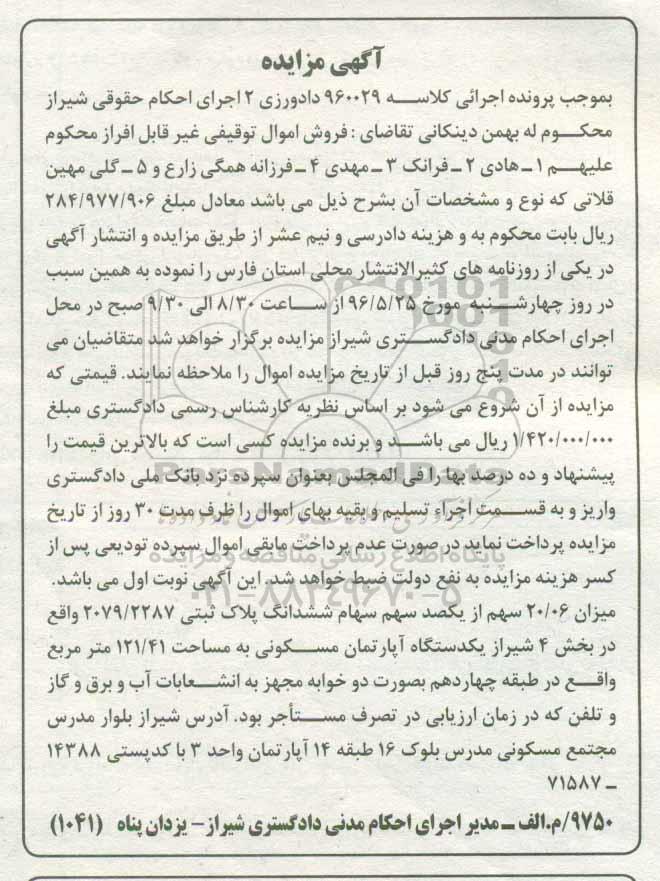 آگهی مزایده
بموجب پرونده اجرائی کلاســه ۹۶۰۰۲۹ دادورزی ۲ اجرای احکام حقوقی شیراز
محکــوم له بهمن دینکانی تقاضای : فروش اموال توقیفی غیر قابل افراز محکوم
علیهــم ۱ ـ هادی ۲ ـ فرانک ۳ ـ مهدی ۴ ـ فرزانه همگی زارع و ۵ ـ گلی مهین
قلاتی که نوع و مشخصات آن بشرح ذیل می باشد معادل مبلغ ۲۸۴/۹۷۷/۹۰۶
ریال بابت محکوم به و هزینه دادرسی و نیم عشر از طریق مزایده و انتشار آگهی
در یکی از روزنامه های کثیرالانتشار محلی استان فارس را نموده به همین سبب
در روز چهارشــنبه مورخ ۹۶/۵/۲۵ از ســاعت ۸/۳۰ الی ۹/۳۰ صبح در محل
اجرای احکام مدنی دادگســتری شیراز مزایده برگزار خواهد شد متقاضیان می
توانند در مدت پنج روز قبل از تاریخ مزایده اموال را ملاحظه نمایند. قیمتی که
مزایده از آن شروع می شود بر اساس نظریه کارشناس رسمی دادگستری مبلغ
۱/۴۲۰/۰۰۰/۰۰۰ ریال می باشــد و برنده مزایده کسی است که بالاترین قیمت را
پیشنهاد و ده درصد بها را فی المجلس بعنوان سپرده نزد بانک ملی دادگستری
واریز و به قســمت اجراء تسلیم و بقیه بهای اموال را ظرف مدت ۳۰ روز از تاریخ
مزایده پرداخت نماید در صورت عدم پرداخت مابقی اموال سپرده تودیعی پس از
کسر هزینه مزایده به نفع دولت ضبط خواهد شد. این آگهی نوبت اول می باشد.
میزان ۲۰/۰۶ سهم از یکصد سهم سهام ششدانگ پلاک ثبتی ۲۰۷۹/۲۲۸۷ واقع
در بخش ۴ شیراز یکدستگاه آپارتمان مسـکونی به مساحت ۱۲۱/۴۱ متر مربع
واقــع در طبقه چهاردهم بصورت دو خوابه مجهز به انشــعابات آب و برق و گاز
و تلفن که در زمان ارزیابی در تصرف مســتأجر بود. آدرس شیراز بلوار مدرس
مجتمع مسکونی مدرس بلوک ۱۶ طبقه ۱۴ آپارتمان واحد ۳ با کدپستی ۱۴۳۸۸
ـ ۷۱۵۸۷
۹۷۵۰/م.الف ــ مدیر اجرای احکام مدنی دادگستری شیراز – یزدان پناه (۱۰۴۱)
ParsNamadData
پایگاه اطلاع رسانی مناقصه و مزایده
۰۲۱-۸۸۳۴۹۶۷۰-۵